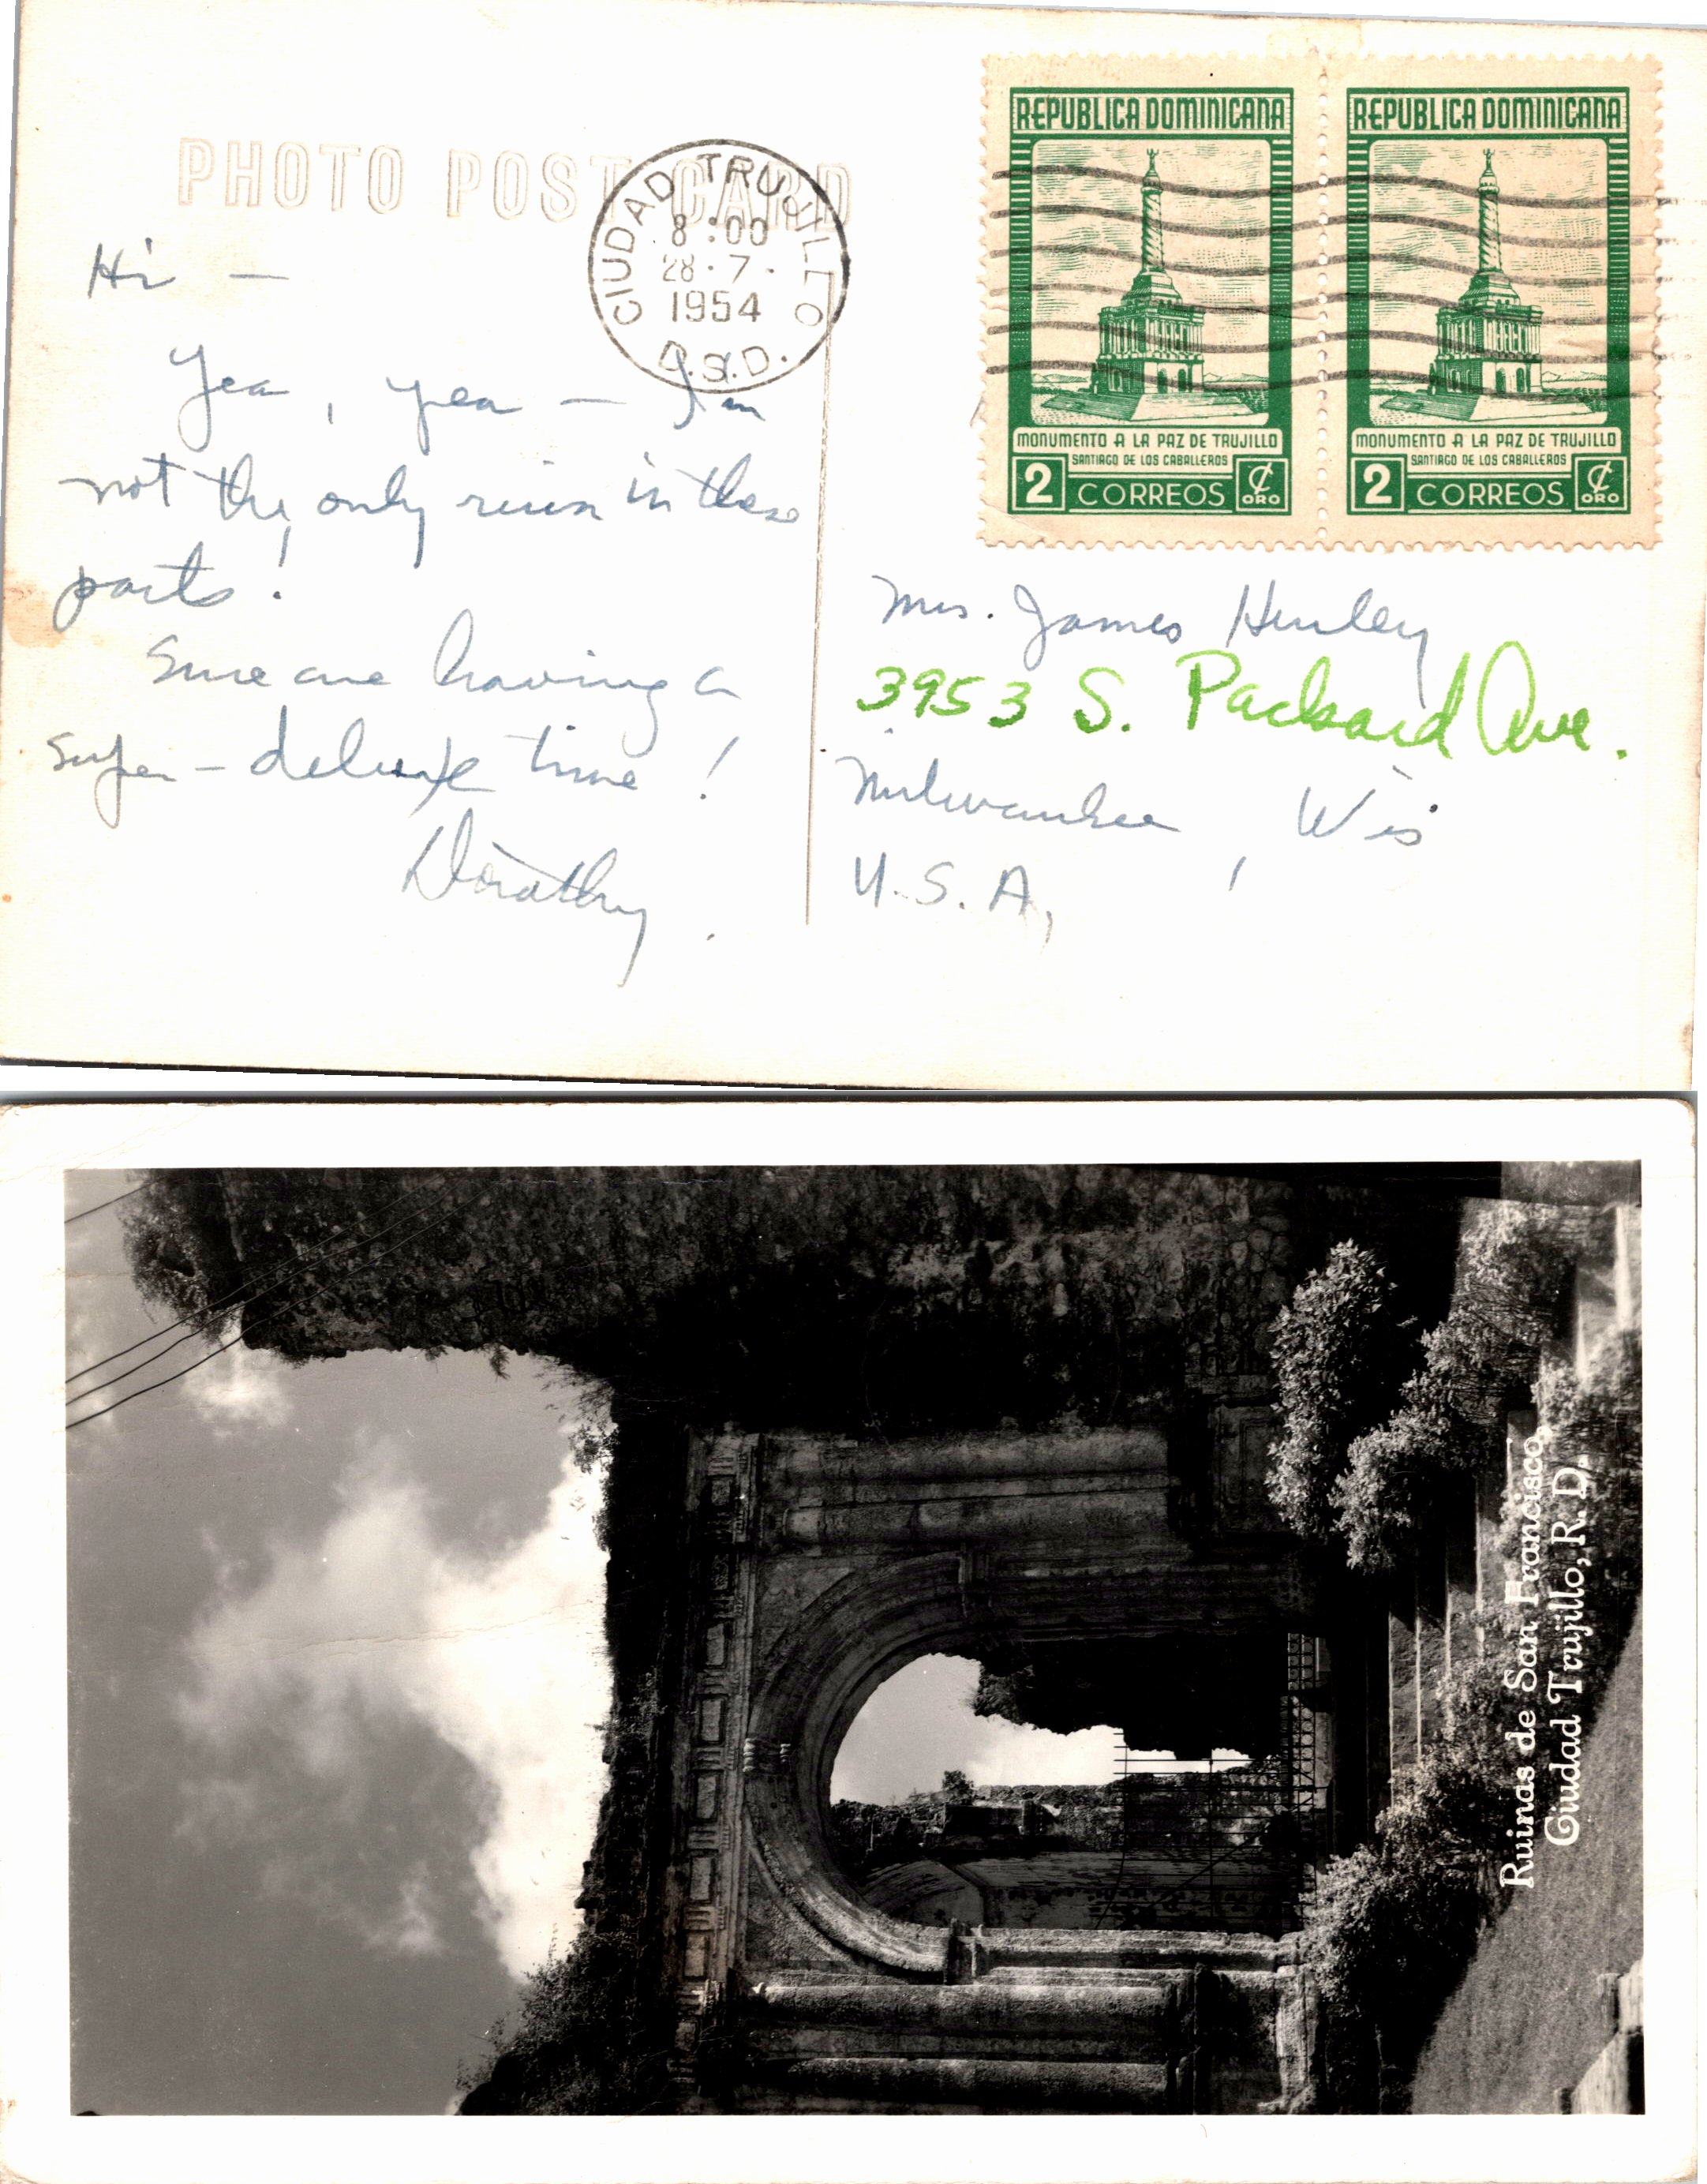 PHOTO POST CARD
CIUDAD TRUJILLO
8:00
28·7·
1954
D.S.D.
REPUBLICA DOMINICANA
MONUMENTO A LA PAZ DE TRUJILLO
SANTIAGO DE LOS CABALLEROS
2 CORREOS ₡ ORO
REPUBLICA DOMINICANA
MONUMENTO A LA PAZ DE TRUJILLO
SANTIAGO DE LOS CABALLEROS
2 CORREOS ₡ ORO
Hi —
Yea, yea — I'm
not the only ruin in these
parts!
Sure are having a
super-deluxe time!
Dorothy
Mrs. James Henley
3953 S. Packard Ave.
Milwaukee, Wis
U.S.A,
Ruinas de San Francisco,
Ciudad Trujillo, R.D.